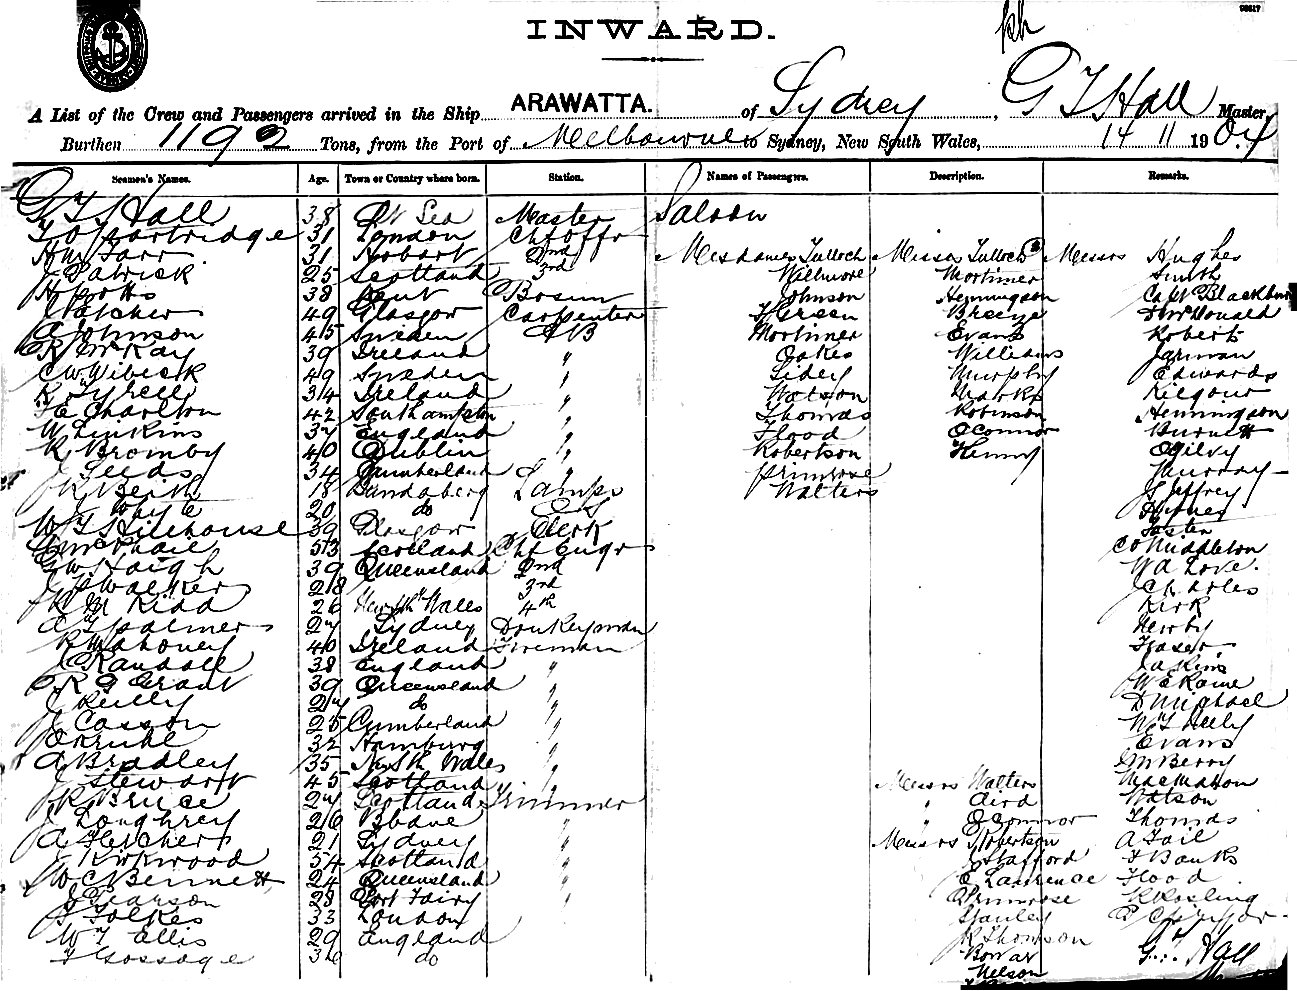 INWARD.
A List of the Crew and Passengers arrived in the Ship ARAWATTA. of Sydney, G T Hall Master
Burthen 1192 Tons, from the Port of Melbourne to Sydney, New South Wales, 14 11 190
Seamen's Names. Age. Town or Country where born. Station. Names of Passengers. Description. Remarks.
G T Hall 38 At Sea Master Saloon
T O Partridge 31 London Chf Offr
Farr 31 Hobart 2nd Mesdames Tulloch Misses Tulloch Messrs Hughes
J Patrick 25 Scotland 3rd Willmore Mortimer Smith
38 Kent Bosun Johnson Henningson Capt Blackburn
49 Glasgow Carpenter Breeze McDonald
A Johnson 45 Sweden A B Mortimer Evans Roberts
R McKay 39 Ireland " Oakes Williams Jarman
C W Wibeck 49 Sweden " Sidey Murphy Edwards
R Tyrell 34 Ireland " Watson Marks Kilgour
Charlton 42 Southampton " Thomas Robinson Henningson
W Jenkins 37 England " Flood OConnor Burnett
R Bromby 40 Dublin " Robertson Ogilvy
J Leeds 34 Cumberland " Primrose Murray
R Beith 18 Bundaberg Lamps Walters Jeffrey
J Whyte 20 do
W T Hillhouse 39 Glasgow Clerk Foster
McPhail 53 Scotland Chf Engr C O Middleton
G W Haigh 39 Queensland 2nd W A Love.
J P Walker 28 3rd Charles
R M Kidd 26 New Sth Wales 4th Kirk
A T Palmer 27 Sydney Donkeyman Newby
R Mahoney 40 Ireland Fireman Fraser
J Randall 38 England " Jakins
R G Grant 39 Queensland " W E Raine
J Reilly 24 do " D Michael
J Casson 25 Cumberland "
E Kruhl 32 Hamburg " Evans
A Bradley 35 N. Sth Wales " Berry
J Stewart 45 Scotland " Messrs Walters MacMahon
R Bruce 24 Scotland Trimmer " Aird Watson
J Loughrey 26 Bbane " " OConnor Thomas
A Fletcher 21 Sydney " Messrs Robertson A Tait
J Kirkwood 54 Scotland " Stafford T Banks
W C Bennett 24 Queensland " E Lawrence Flood
J Pearson 28 Port Fairy " Primrose R Rosling
J Folkes 33 London Stanley
W T Ellis 29 England R Thompson G.T. Hall
T Gossage 36 do Bowar
Nelson